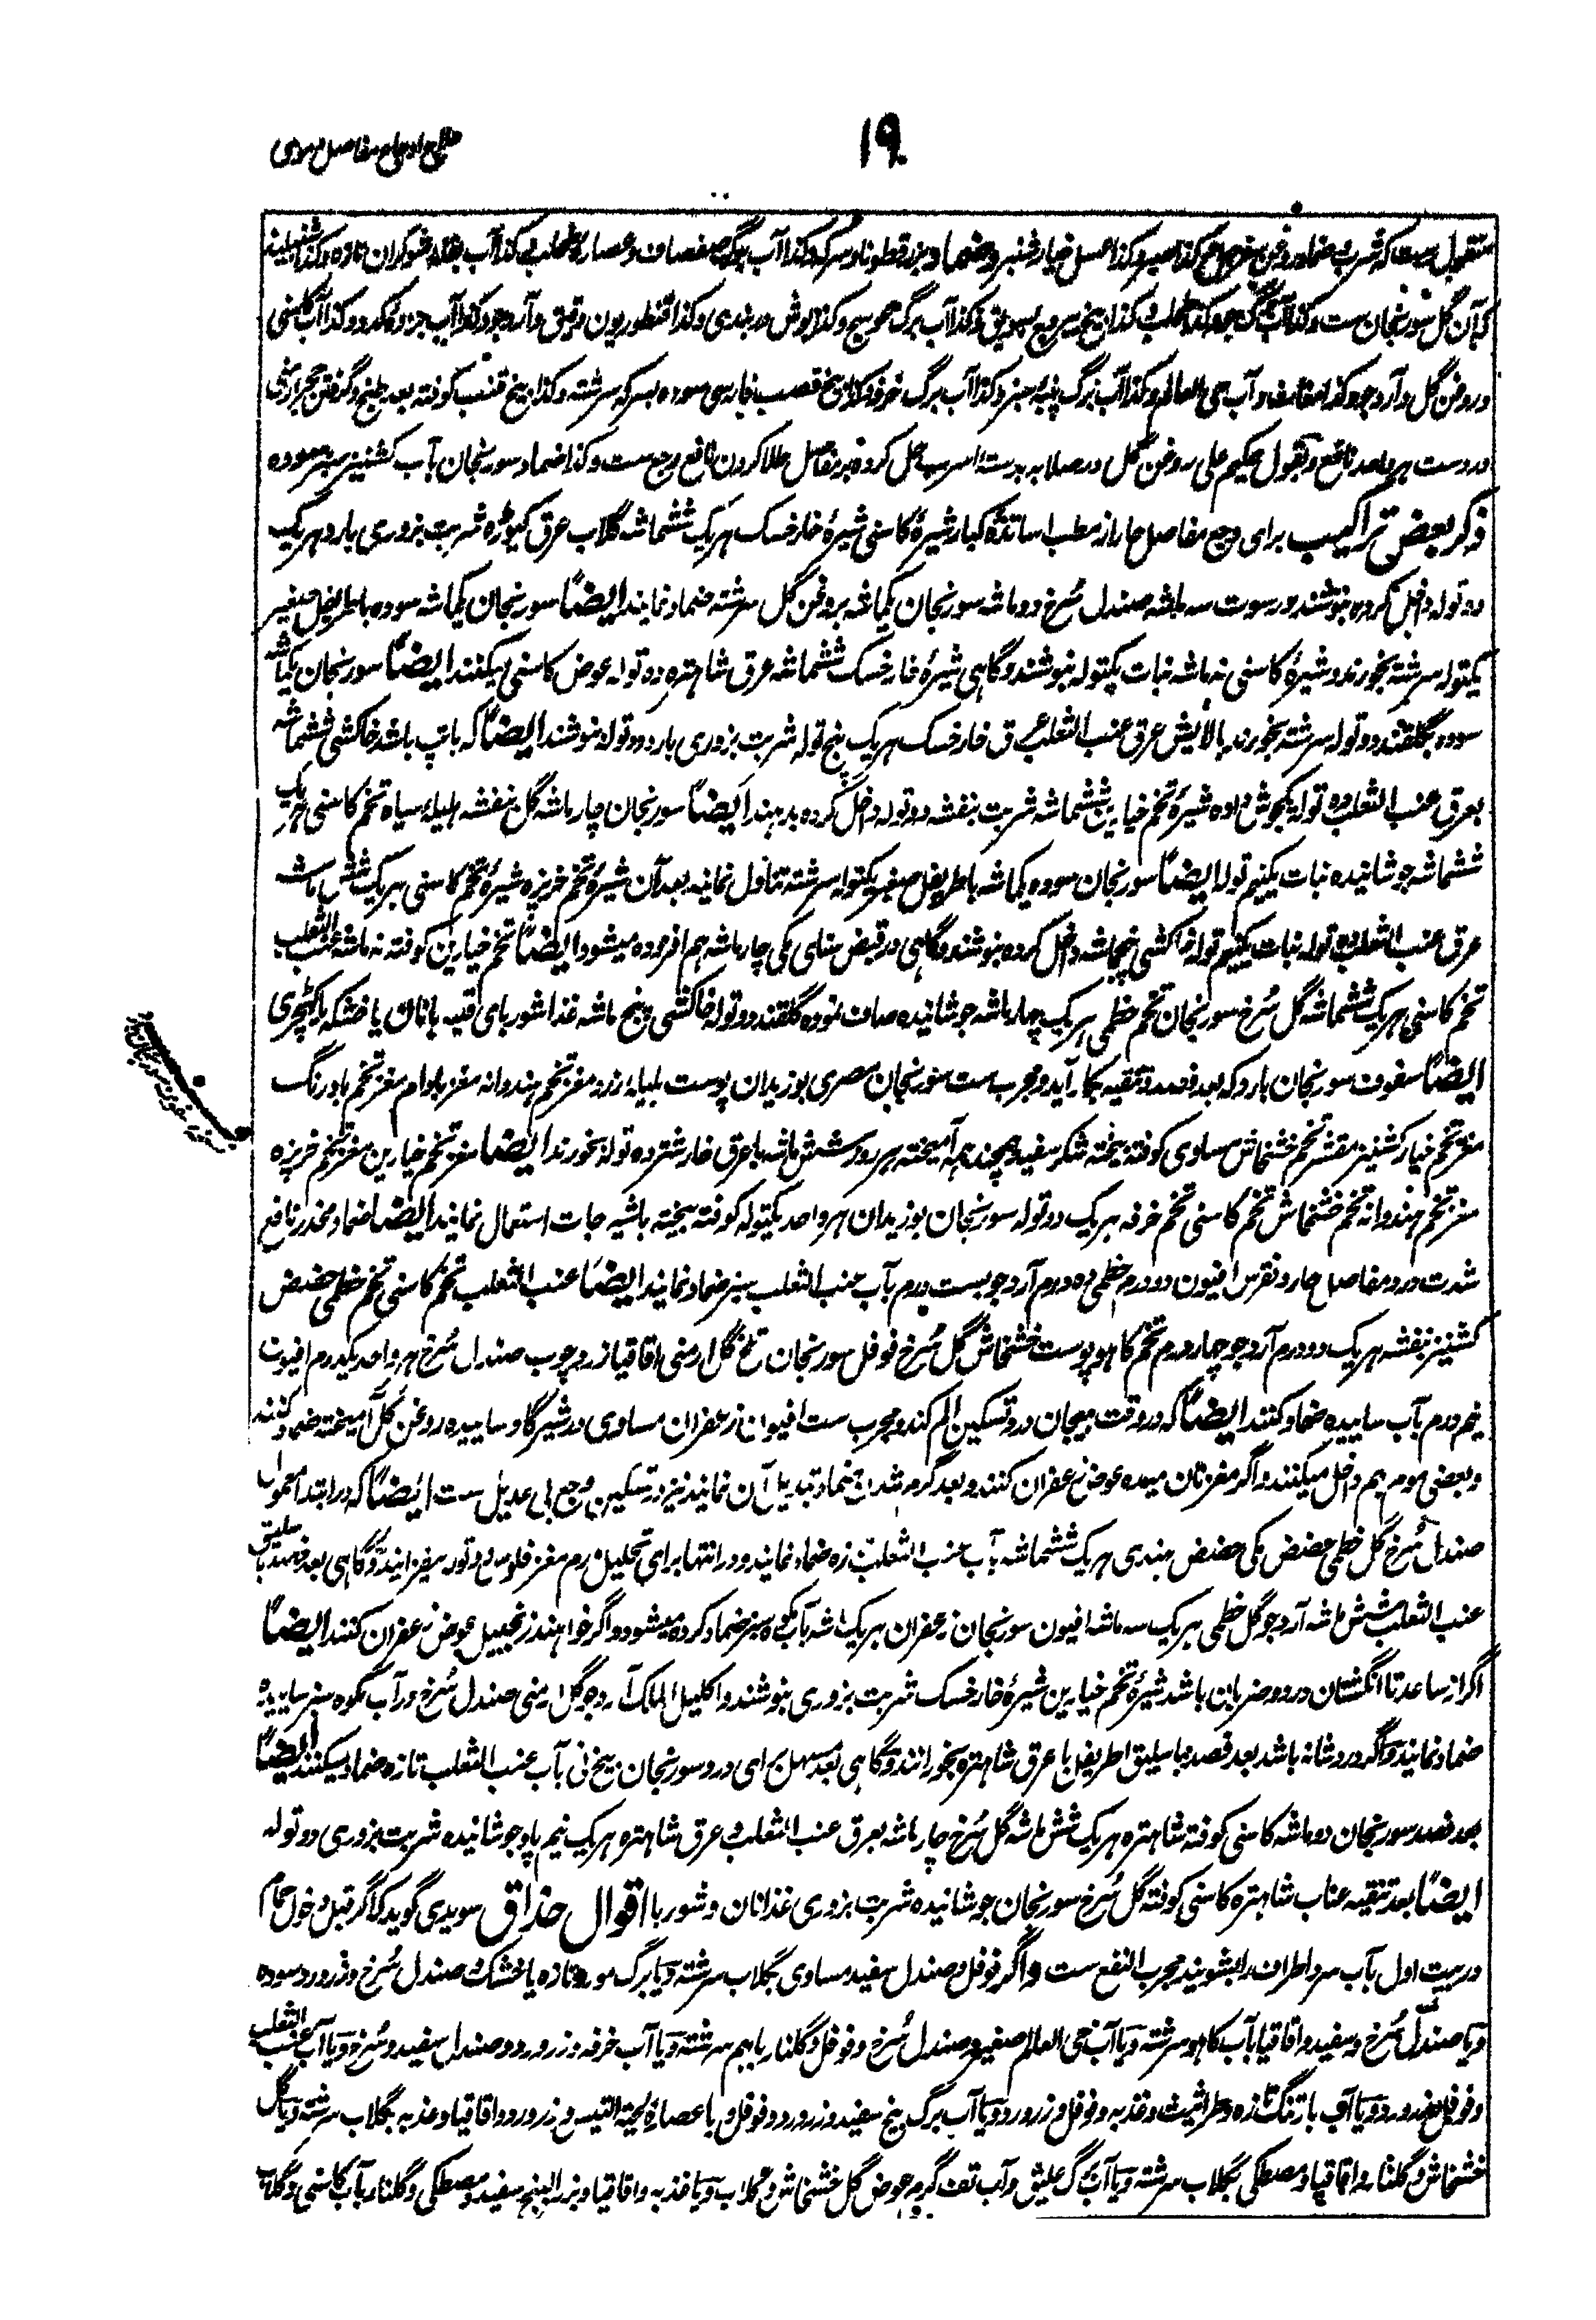 علاج اوجاع مفاصل دموی
۱۹
منقول ست که شرب و ضماد روغن کذا صبر و کذا عسل خیارشنبر و ضماد بزر قطونا و سرکه و کذا آب برگ صفصاف و عصارهٔ و کذا آب شوکران تازه و کذا شنبلید
که آن گل سورنجان ست و کذا آب برگ و کذا طحلب و کذا بیخ و کذا آب برگ عوسج و کذا بوش دربندی و کذا قنطوریون دقیق و آرد جو و کذا آب جزو کدو و کذا آب کاسنی
و روغن گل و آرد جو و کذا و آب حی العالم و کذا آب برگ پنبه سبز و کذا آب برگ خرفه و کذا بیخ قصب فارسی سوده بسرکه سرشته و کذا بیخ قنب کوفته بعد طبخ و گرفتن
درست هر واحد نافع و بقول حکیم علی روغن گل در صلابه بدسته اسرب حل کرده بر مفاصل طلا کردن نافع وجع ست و کذا ضماد سورنجان بآب کشنیز سبز سوده
ذکر بعض تراکیب برای وجع مفاصل حار از مطب اساتذهٔ کبار شیرهٔ کاسنی شیرهٔ خارخسک هر یک ششماشه گلاب عرق کیوڑه شربت بزوری بارد هر یک
دو توله داخل کرده بنوشند و رسوت سه ماشه صندل سرخ دو ماشه سورنجان یکماشه بروغن گل سرشته ضماد نمایند ایضاً سورنجان یکماشه سوده باطریفل صغیر
یکتوله سرشته بخورند و شیرهٔ کاسنی نه ماشه نبات یکتوله بنوشند و گاهی شیرهٔ خارخسک ششماشه عرق شاهتره ده توله عوض کاسنی میکنند ایضاً سورنجان یکماشه
سوده بگلقند دو توله سرشته بخورند بالایش عرق عنب الثعلب عرق خارخسک هر یک پنج توله شربت بزوری بارد دو توله بنوشند ایضاً که باتپ باشد خاکشی ششماشه
بعرق عنب الثعلب ده توله یکجوش داده شیرهٔ تخم خیارین ششماشه شربت بنفشه دو توله داخل کرده بدهند ایضاً سورنجان چار ماشه گل بنفشه هلیلهٔ سیاه تخم کاسنی هر یک
ششماشه جوشانیده نبات یکنیم توله ایضاً سورنجان سوده یکماشه باطریفل صغیر یکتوله سرشته تناول نمایند بعد آن شیرهٔ تخم خرپزه شیرهٔ تخم کاسنی هر یک شش ماشه
عرق عنب الثعلب ده توله نبات یکنیم توله خاکشی پنجماشه داخل کرده بنوشند و گاهی در قبض سنای مکی چار ماشه هم افزوده میشود ایضاً تخم خیارین کوفته نه ماشه عنب الثعلب
تخم کاسنی هر یک ششماشه گل سرخ سورنجان تخم خطمی هر یک چهار ماشه جوشانیده صاف نموده گلقند دو توله خاکشی پنج ماشه غذا شوربای قیه بانان یا خشکه یا کھچڑی
ایضاً سفوف سورنجان بارد که بعد فصد و تنقیه بکار آید و مجرب ست سورنجان مصری بوزیدان پوست هلیلهٔ زرد مغز تخم هندوانه مغز بادام مغز تخم بادرنگ
مغز تخم خیار کشنیز مقشر تخم خشخاش مساوی کوفته بیخته شکر سفید همچند همه آمیخته هر روز شش ماشه با عرق خارشتر ده توله بخورند ایضاً مغز تخم خیارین مغز تخم خرپزه
مغز تخم هندوانه تخم خشخاش تخم کاسنی تخم خرفه هر یک دو توله سورنجان بوزیدان هر واحد یکتوله کوفته بیخته باشیه جات استعمال نمایند ایضاً ضماد مخدر نافع
شدت درد مفاصل حار و نقرس افیون دو درم خطمی ده درم آرد جو بست درم بآب عنب الثعلب سبز ضماد نمایند ایضاً عنب الثعلب تخم کاسنی تخم خطمی حضض
کشنیز بنفشه هر یک دو درم آرد جو چهار درم تخم کاهو پوست خشخاش گل سرخ فوفل سورنجان تلخ گل ارمنی اقاقیا زرد چوب صندل سرخ هر واحد یکدرم افیون
نیم درم بآب ساییده ضماد کنند ایضاً که در وقت هیجان درد تسکین الم کند و مجرب ست افیون زعفران مساوی در شیر گاو ساییده روغن گل آمیخته ضماد کنند
و بعضی موم هم داخل میکنند و اگر مغز نان میده عوض زعفران کنند و بعد گرم شدن ضماد تبدیل آن نمایند نیز در تسکین وجع بی عدیل ست ایضاً که در ابتدا معمول
صندل سرخ گل خطمی حضض مکی حضض هندی هر یک ششماشه بآب عنب الثعلب تازه ضماد نمایند و در انتها برای تحلیل ورم مغز فلوس دو توله میفزایند و گاهی بعد فصد باسلیق
عنب الثعلب شش ماشه آرد جو گل خطمی هر یک سه ماشه افیون سورنجان زعفران هر یک ماشه بآب مکوه سبز ضماد کرده میشود و اگر خواهند زنجبیل عوض زعفران کنند ایضاً
اگر از ساعد تا انگشتان درد و ضربان باشد شیرهٔ تخم خیارین شیرهٔ خارخسک شربت بزوری بنوشند و اکلیل الملک آرد جو گل ارمنی صندل سرخ در آب مکوه سبز ساییده
ضماد نمایند و اگر درد شانه باشد بعد فصد باسلیق اطریفل با عرق شاهتره بخورانند و گاهی بعد مسهل برای درد سورنجان بیخ نی بآب عنب الثعلب تازه ضماد میکنند ایضاً
بعد فصد سورنجان دو ماشه کاسنی کوفته شاهتره هر یک شش ماشه گل سرخ چار ماشه بعرق عنب الثعلب و عرق شاهتره هر یک نیم پاو جوشانیده شربت بزوری دو توله
ایضاً بعد تنقیه عناب شاهتره کاسنی کوفته گل سرخ سورنجان جوشانیده شربت بزوری غذا نان و شوربا اقوال حذاق سویدی گوید که اگر قبل دخول حمام
در بیت اول بآب سرد اطراف را بشویند مجرب النفع ست و اگر فوفل و صندل سفید مساوی بگلاب سرشته و یا برگ مورد تازه یا خشک و صندل سرخ و زرورد سوده
و یا صندل سرخ و سفید و اقاقیا بآب کاهو سرشته و یا آب حی العالم صغیر و صندل سرخ و فوفل و گلنار باهم سرشته و یا آب خرفه و زرورد و صندل سفید و سرخ و یا آب عنب الثعلب
و فوفل و زرورد و یا آب بارتنگ تازه و طراثیث و غذبه و فوفل و زرورد و یا آب برگ بنج سفید و زرورد و فوفل و یا عصارهٔ لحیة التیس و زرورد و اقاقیا و غذبه بگلاب سرشته و یا گل
خشخاش و گلنار و اقاقیا و مصطکی بگلاب سرشته و یا آب برگ علیق و آب عوض گل خشخاش و گلاب و یا غذبه و اقاقیا و بزر البنج سفید و مصطکی و گلنار بآب کاسنی و گلاب